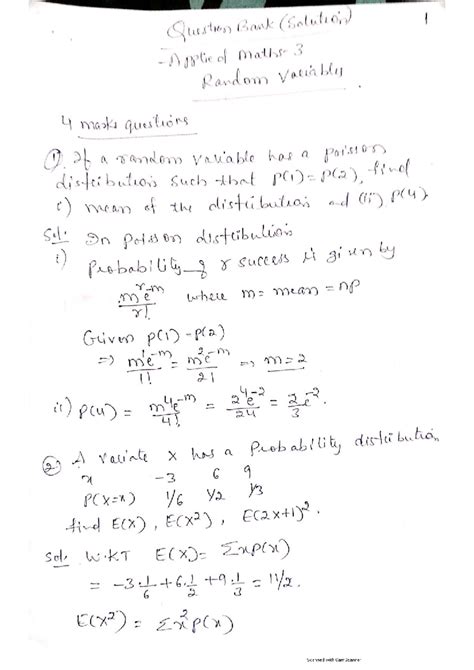 Question Bank (Solution) 1
- Applied Maths-3
Random Variables
4 marks questions
① If a random variable has a poisson
distribution such that P(1) = P(2), find
i) mean of the distribution and (ii) P(4).
Sol: In poisson distribution
i) Probability of r success is given by
m^r e^-m / r! where m = mean = np
Given P(1) - P(2)
=> m^1 e^-m / 1! = m^2 e^-m / 2! => m = 2
ii) P(4) = m^4 e^-m / 4! = 2^4 e^-2 / 24 = 2/3 e^-2.
② A variate X has a Probability distribution
x -3 6 9
P(X=x) 1/6 1/2 1/3
find E(X), E(X²), E(2x+1)².
Sol: W.K.T E(X) = Σxp(x)
= -3.1/6 + 6.1/2 + 9.1/3 = 11/2.
E(X²) = Σx²p(x)
Scanned with CamScanner